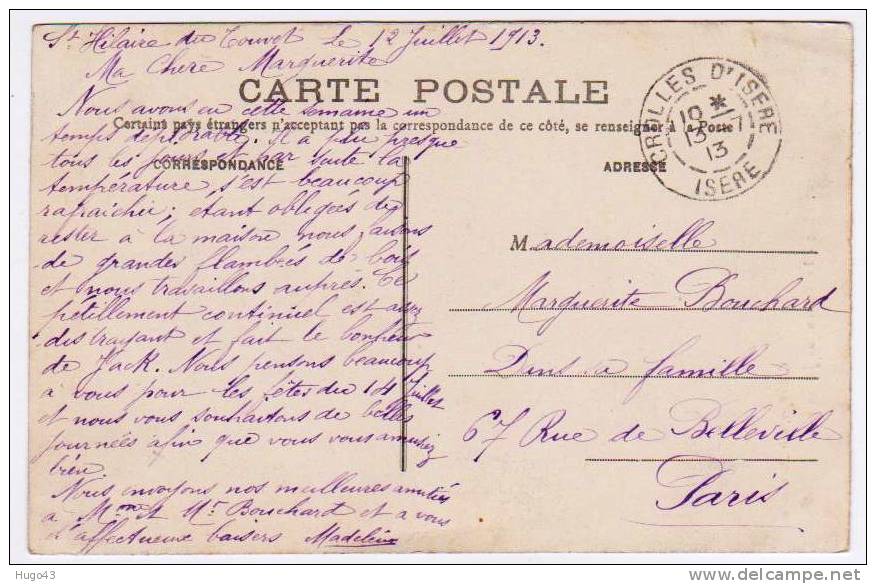 St Hilaire du Touvet le 12 Juillet 1913.
Ma Chère Marguerite
CARTE POSTALE
Certains pays étrangers n'acceptant pas la correspondance de ce côté, se renseigner à la Poste
CORRESPONDANCE
Nous avons eu cette semaine un
temps déplorable. Il a plu presque
tous les jours, par suite la
température s'est beaucoup
rafraichie; étant obligées de
rester à la maison nous faisons
de grandes flambées de bois
et nous travaillons auprès. Ce
pétillement continuel est assez
distrayant et fait le bonheur
de Jack. Nous pensons beaucoup
à vous pour les fêtes du 14 Juillet
et nous vous souhaitons de belles
journées afin que vous vous amusiez
bien
Nous envoyons nos meilleures amitiés
à Mme et Mr Bouchard et a vous
d'affectueux baisers Madeleine
ADRESSE
CROLLES DT ISERE
10 *
13 - 7
13
ISERE
Mademoiselle
Marguerite Bouchard
Dans sa famille
67 Rue de Belleville
Paris
Hugo43
delcampe.net